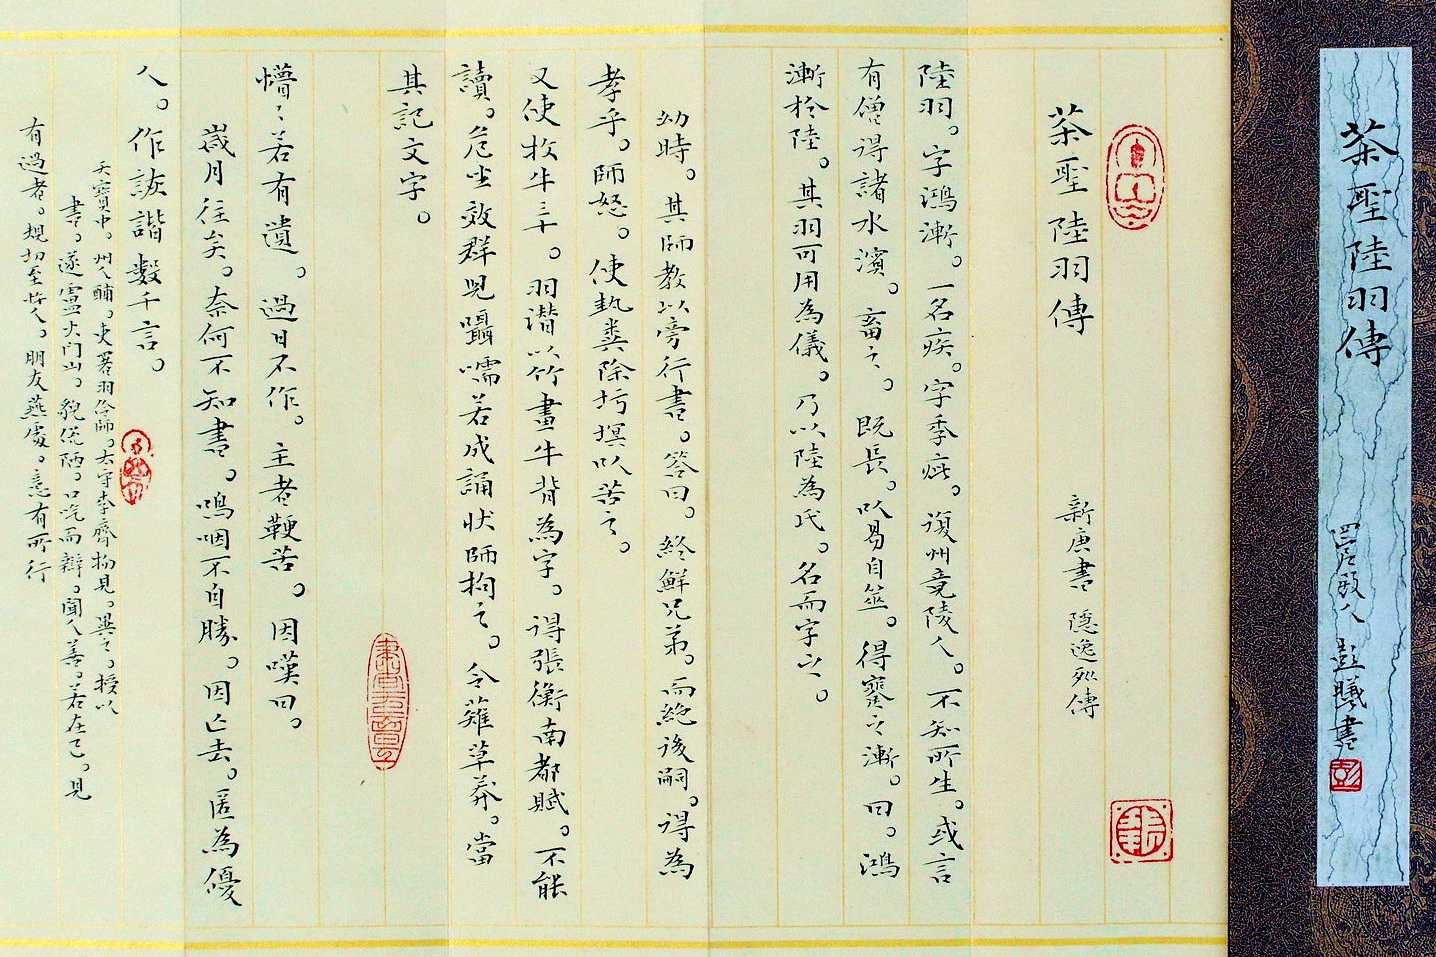 茶聖陸羽傳
彭曦書
茶聖陸羽傳
新唐書 隱逸列傳
陸羽。字鴻漸。一名疾。字季疵。復州竟陵人。不知所生。或言
有僧得諸水濱。畜之。既長。以易自筮。得蹇之漸。曰。鴻
漸於陸。其羽可用為儀。乃以陸為氏。名而字之。
幼時。其師教以旁行書。答曰。終鮮兄弟。而絕後嗣。得為
孝乎。師怒。使執糞除圬塓以苦之。
又使牧牛三十。羽潛以竹畫牛背為字。得張衡南都賦。不能
讀。危坐效群兒囁嚅若成誦狀師拘之。令薙草莽。當
其記文字。
懵〻若有遺。過日不作。主者鞭苦。因嘆曰。
歲月往矣。奈何不知書。嗚咽不自勝。因亡去。匿為優
人。作詼諧數千言。
天寶中。州人酺。吏署羽伶師。太守李齊物見。異之。授以
書。遂廬火門山。貌侻陋。口吃而辯。聞人善。若在己。見
有過者。規切至忤人。朋友燕處。意有所行